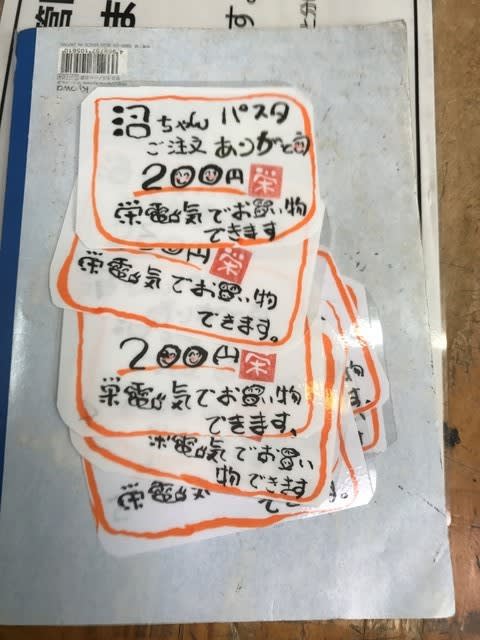 す。
沼ちゃん パスタ
ご注文 ありがとう
200円 栄
栄電気でお買い物
できます
00円 栄
栄電気でお買い物
できます。
200円 栄
栄電気でお買い物
できます、
栄電気でお買い
物できます
栄電気